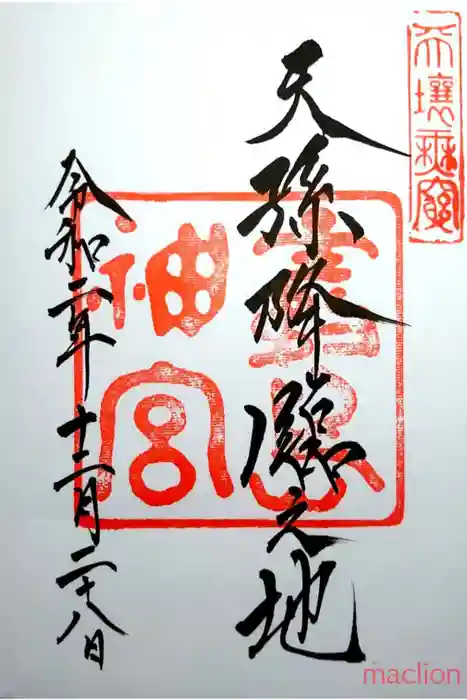 天壌無窮
天孫降臨之地
霧島神宮
令和二年十二月二十八日
maclion